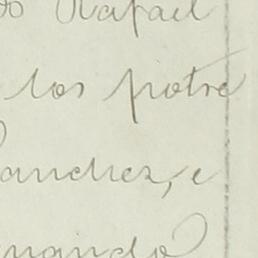 Rafael
los potre
anchez, e
nando